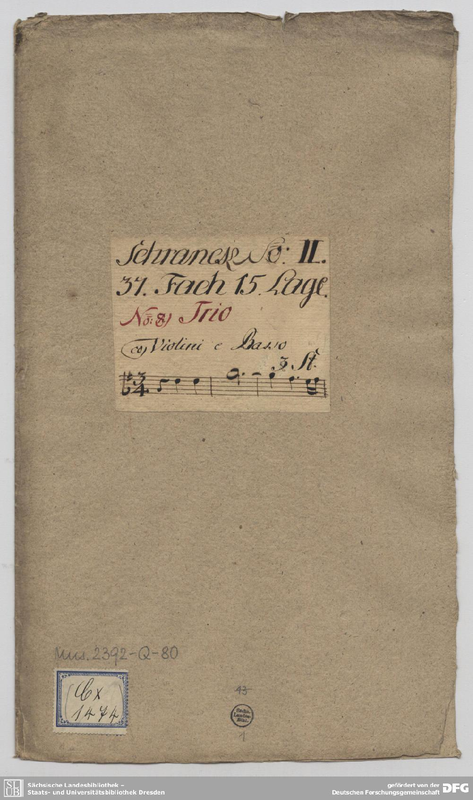 Schranck No: II.
37. Fach 15. Lage.
No: 8) Trio
co Violini e Basso
3 St.
3
4
Mus. 2392-Q-80
Cx
1474
43
Sächs.
Landes-
Bibl.
1
SLUB
Sächsische Landesbibliothek –
Staats- und Universitätsbibliothek Dresden
gefördert von der
Deutschen Forschungsgemeinschaft
DFG